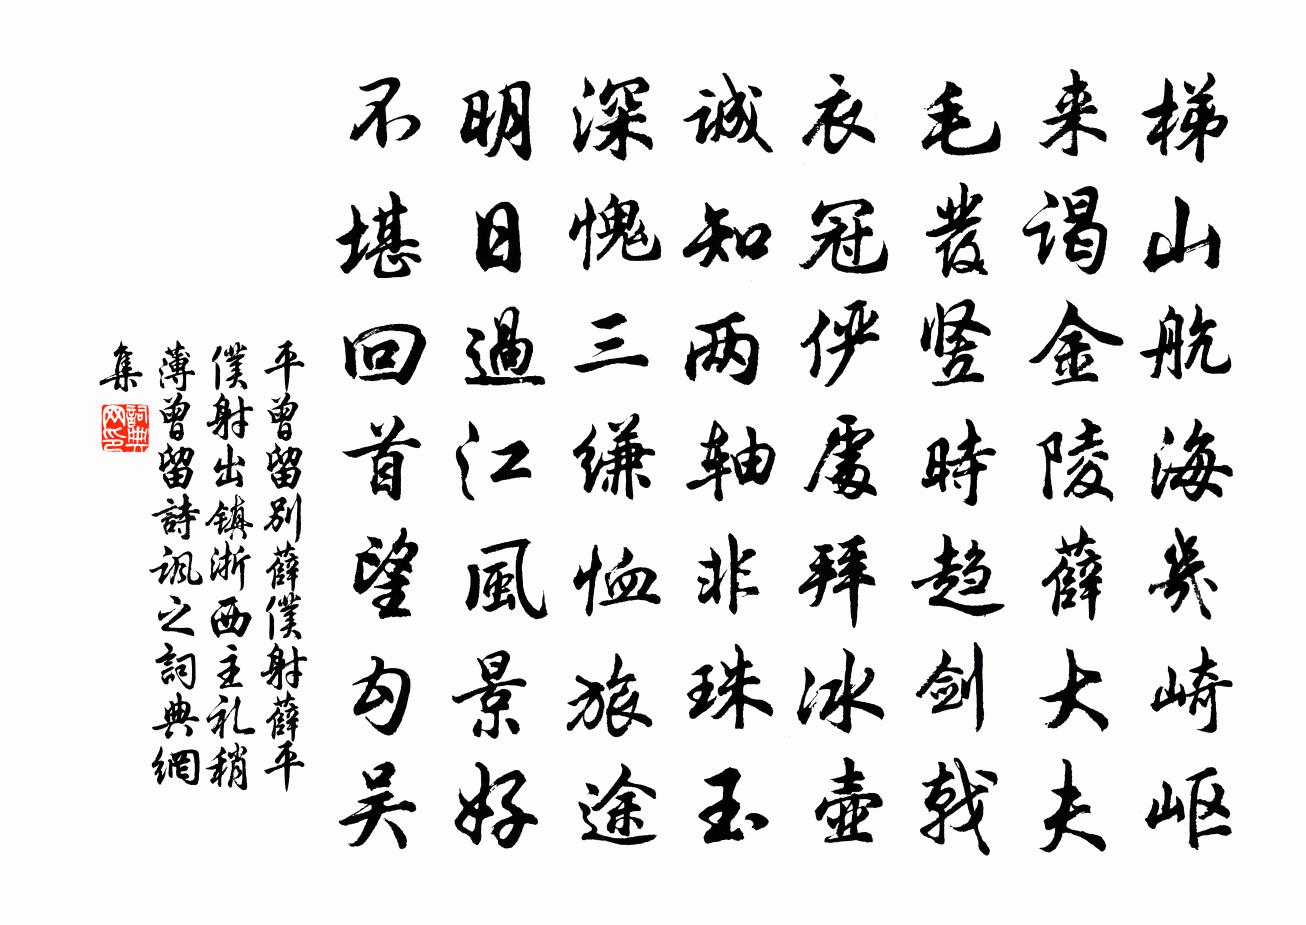 梯山航海幾崎岖
来谒金陵薛大夫
毛發竖時趋剑戟
衣冠俨處拜冰壶
诚知两轴非珠玉
深愧三缣恤旅途
明日過江風景好
不堪回首望勾吴
平曾留别薛僕射薛平
僕射出镇浙西主礼稍
薄曾留詩讽之詞典網
集
詞典网印